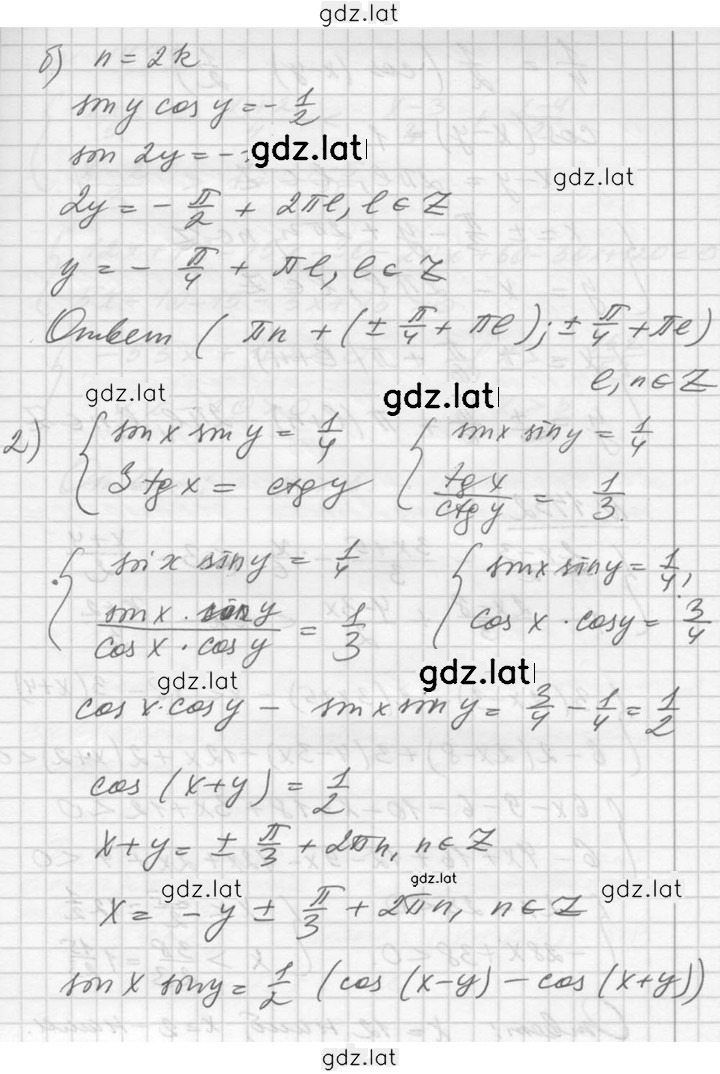 gdz.lat
б) n = 2k
sin y cos y = - 1/2
sin 2y = - gdz.lat
gdz.lat
2y = - π/2 + 2πl, l ∈ Z
y = - π/4 + πl, l ∈ Z
Ответ ( πn + (± π/4 + πl); ± π/4 + πl)
l, n ∈ Z
gdz.lat gdz.lat
2) { sin x sin y = 1/4 { sin x sin y = 1/4
3 tg x = ctg y tg x / ctg y = 1/3.
{ sin x sin y = 1/4 { sin x sin y = 1/4,
sin x · sin y / cos x · cos y = 1/3 cos x · cos y = 3/4
gdz.lat gdz.lat
cos x · cos y - sin x sin y = 3/4 - 1/4 = 1/2
cos (x+y) = 1/2
x+y = ± π/3 + 2πn, n ∈ Z
gdz.lat gdz.lat gdz.lat
x = - y ± π/3 + 2πn, n ∈ Z
sin x sin y = 1/2 (cos (x-y) - cos (x+y))
gdz.lat